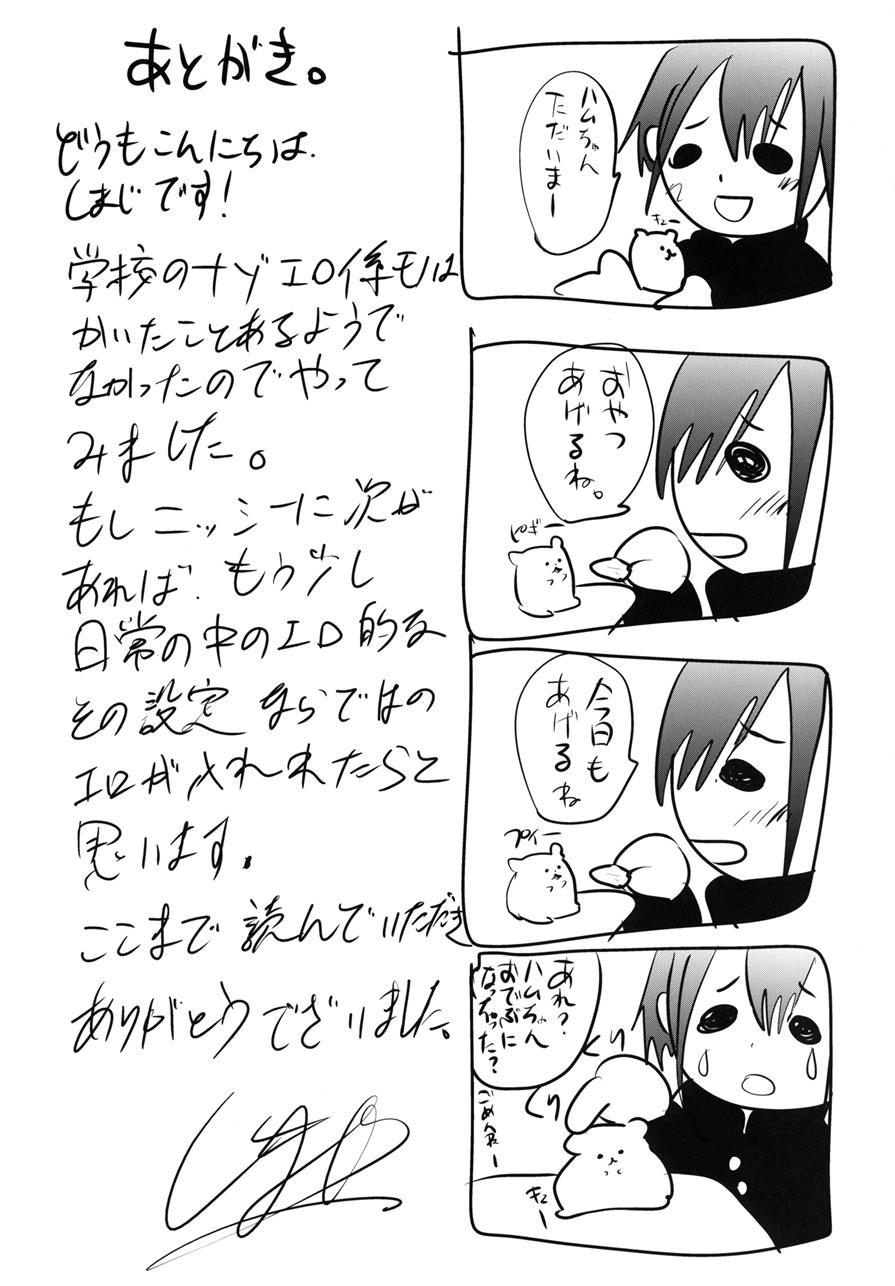 あとがき。
どうもこんにちは、
しまじです!
学校のナゾエロ係モノは
かいたことあるようで
なかったのでやって
みました。
もしニッシーに次が
あれば、もう少し
日常の中のエロ的な
その設定ならではの
エロがいれれたらと
思います。
ここまで読んでいただき
ありがとうございました。
ハムちゃん
ただいまー
キュー
おやつ
あげるね。
ピギー
今日も
あげるね
プイー
あれ?
ハムちゃん
おでぶに
なっちゃった?
ごめんねー
キュー